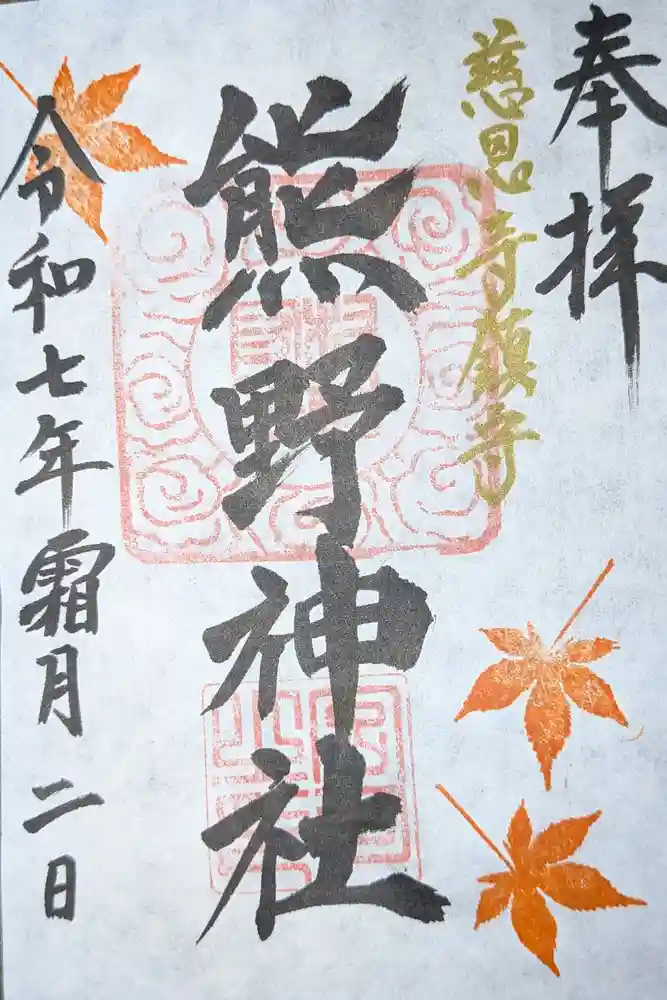 奉拝
慈恩寺領寺
熊野神社
令和七年霜月二日